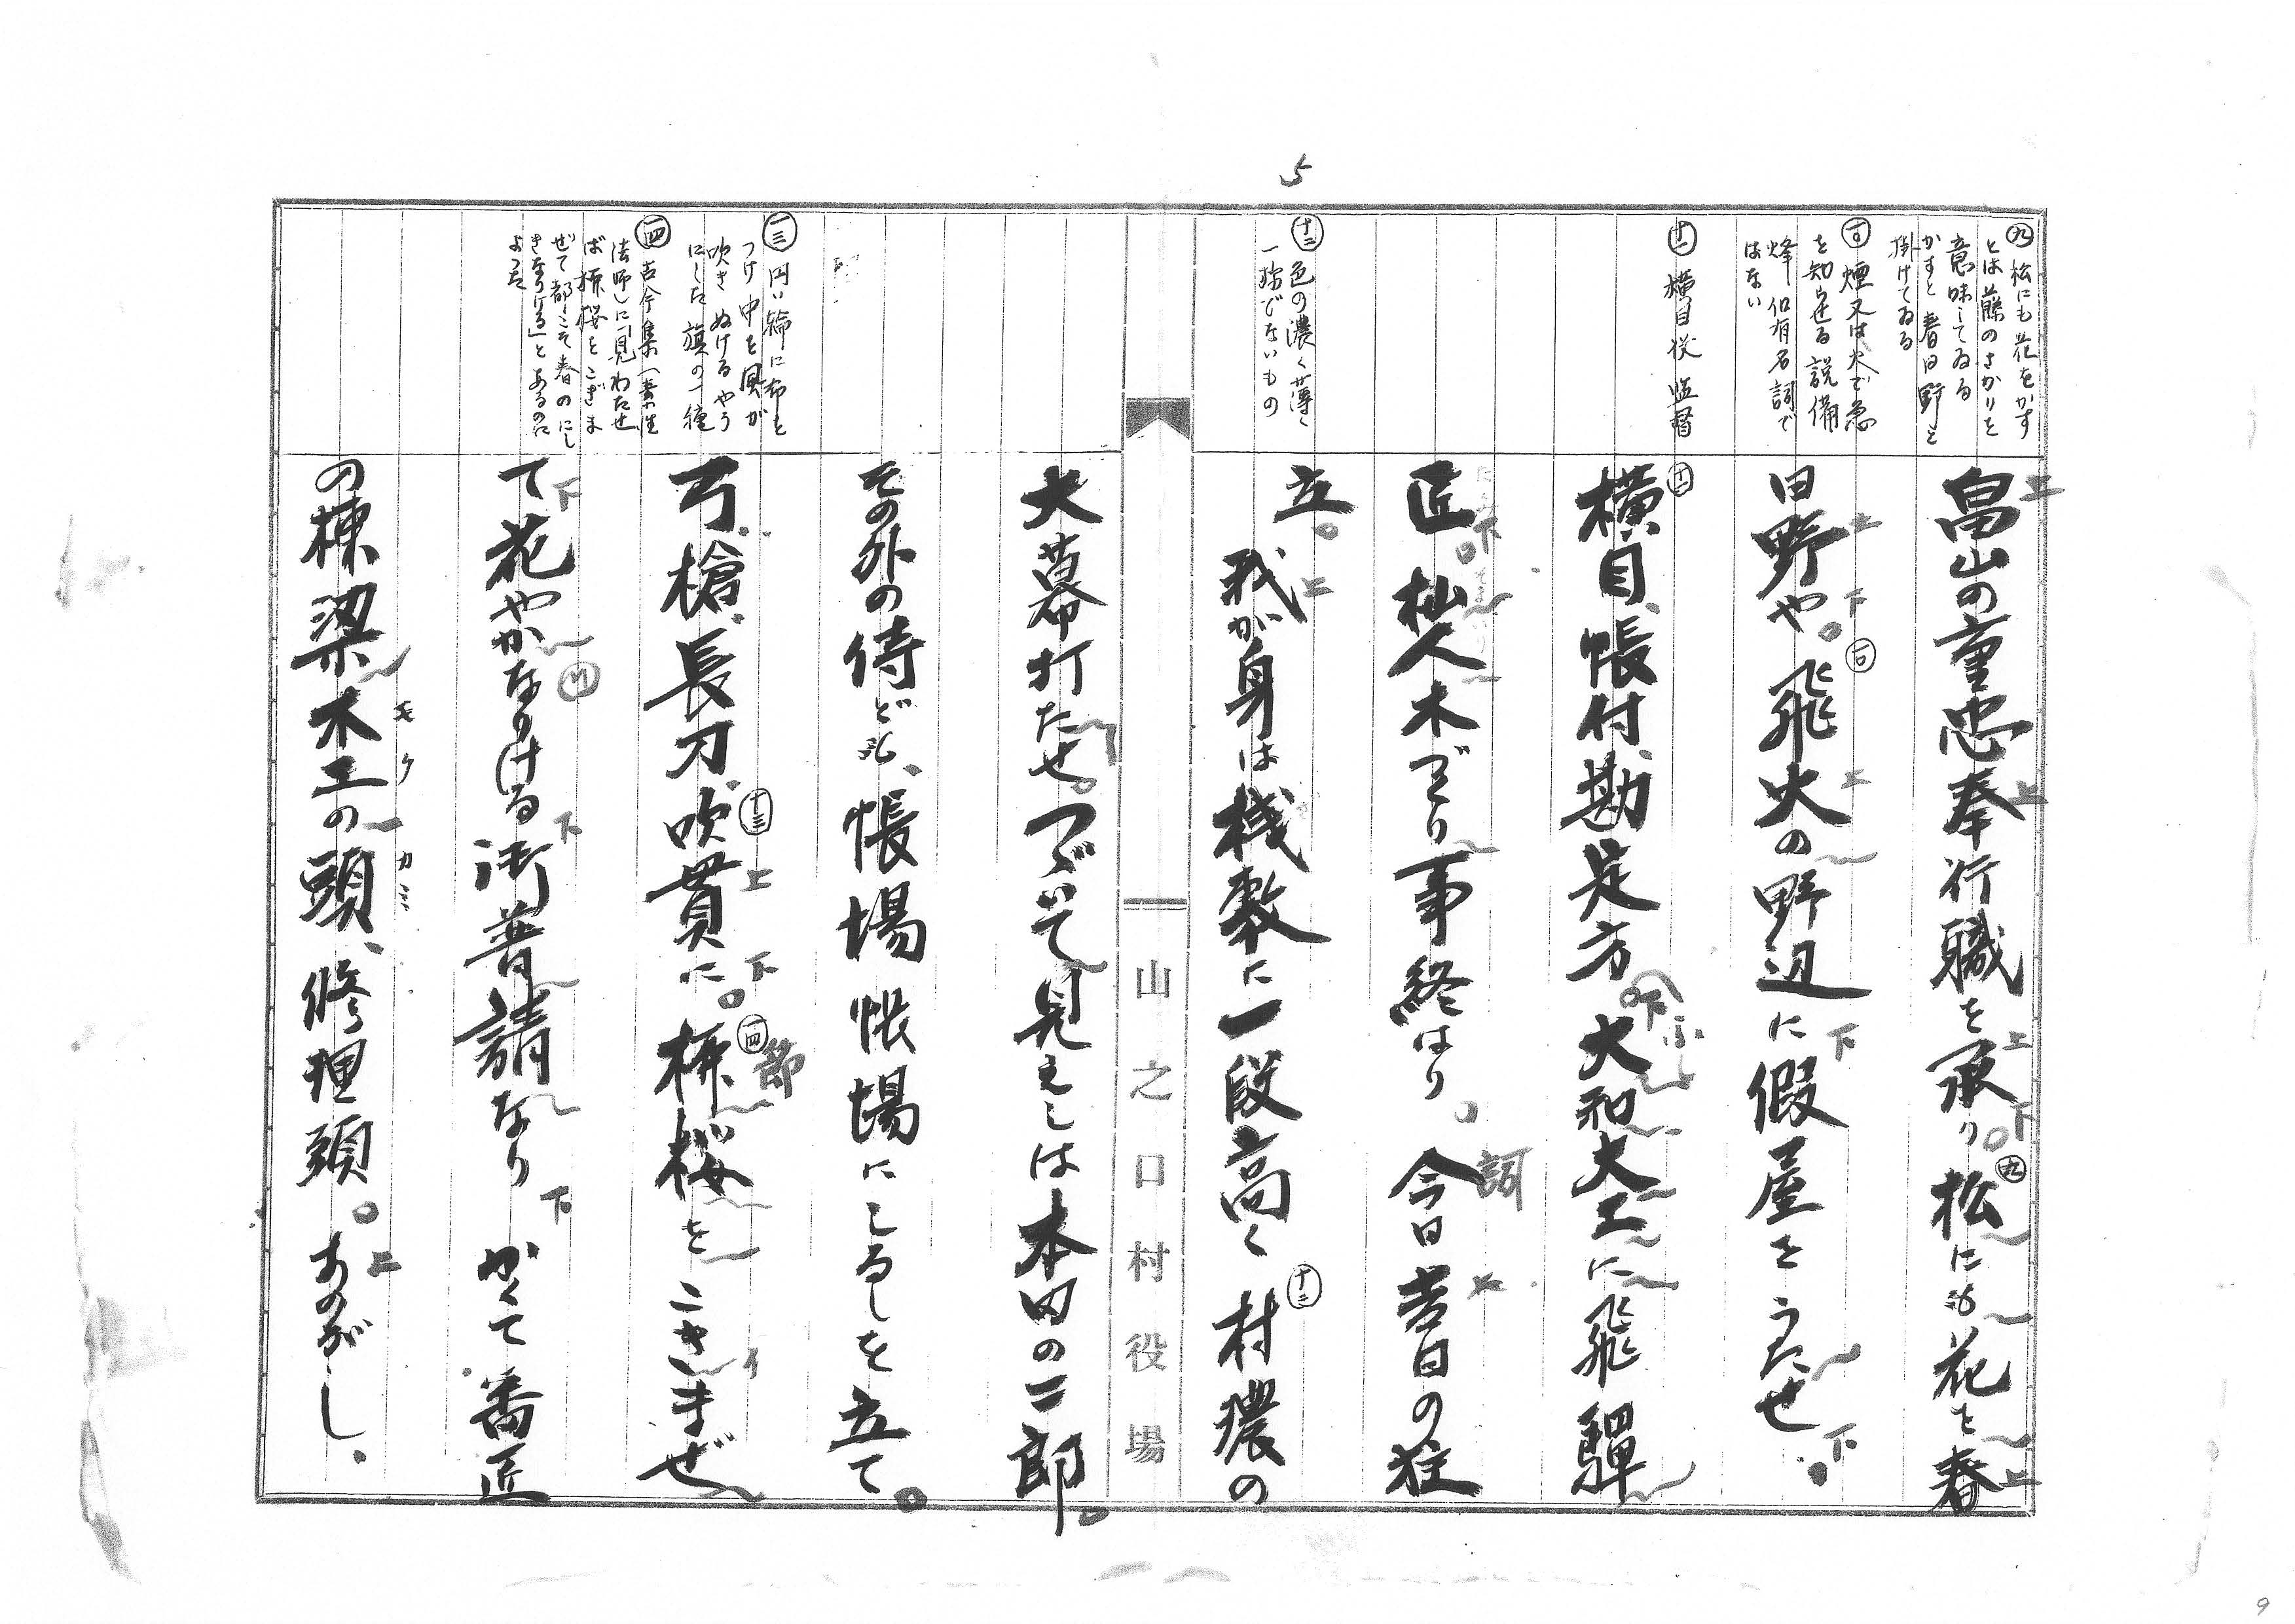 5
㊈ 松にも花をかす
とは藤のさかりを
意味してゐる
かすと春日野と
掛けてゐる
㊉ 煙又は火で急
を知らせる設備
烽 但有名詞で
はない
十一 横目役 監督
畠山の重忠奉行職を承り。松にも花を春
日野や。飛火の野辺に假屋をうたせ。
横目、帳付、勘定方 大和大工に飛騨
匠。杣人木づくり事終はり。今日吉日の柱
十二 色の濃く薄く
一様でないもの
立。我が身は桟敷に一段高く 村濃の
山之口村役場
大幕打たせ。つゞいて見えしは本田の二郎。
その外の侍ども、帳場帳場にしるしを立て。
一三 円い輪に布を
つけ中を風が
吹きぬけるやう
にした旗の一種
一四 古今集(素性
法師)に「見わたせ
ば柳桜をこぎま
ぜて都こそ春のにし
きなりける」とあるのに
よった
弓、槍、長刀、吹貫に。柳桜をこきまぜ
て花やかなりける御普請なり かくて番匠
の棟梁木工の頭、修理頭。あのがし。
モク
カミ
詞
節
ふし
9